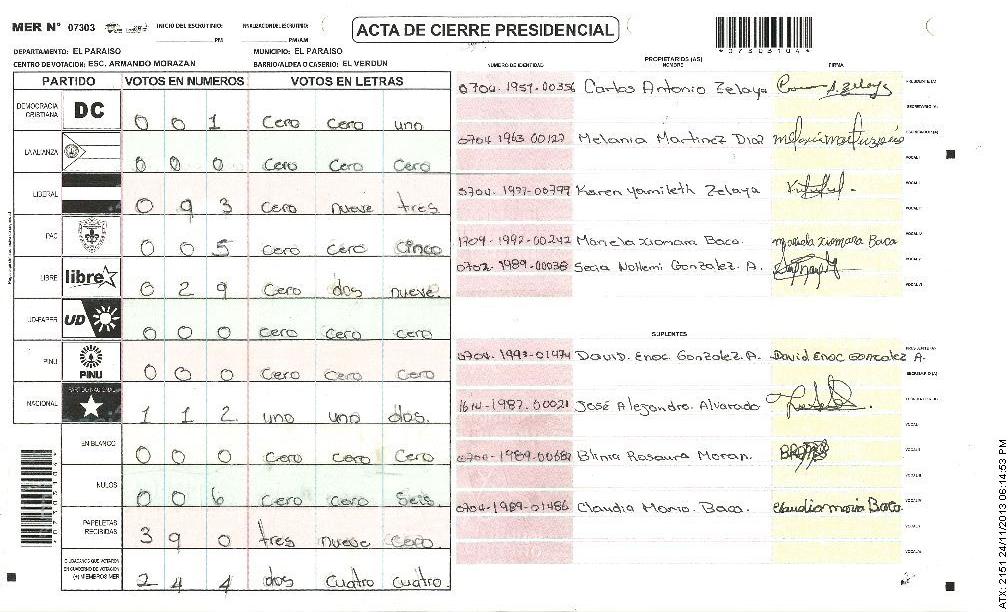 MER N° 07303 INICIO DEL ESCRUTINIO: PM FINALIZACION DEL ESCRUTINIO: PM/AM
ACTA DE CIERRE PRESIDENCIAL
DEPARTAMENTO: EL PARAISO MUNICIPIO: EL PARAISO
CENTRO DE VOTACION: ESC. ARMANDO MORAZAN BARRIO/ALDEA O CASERIO: EL VERDUN
PARTIDO VOTOS EN NUMEROS VOTOS EN LETRAS
DEMOCRACIA CRISTIANA DC 0 0 1 Cero Cero uno
LA ALIANZA 0 0 0 Cero Cero Cero
LIBERAL 0 9 3 Cero nueve tres
PAC 0 0 5 Cero Cero Cinco
LIBRE libre 0 2 9 Cero dos nueve.
UD-FAPER UD 0 0 0 Cero Cero Cero
PINU PINU 0 0 0 Cero Cero Cero
NACIONAL PARTIDO NACIONAL 1 1 2 uno uno dos.
EN BLANCO 0 0 0 Cero Cero Cero
NULOS 0 0 6 Cero Cero Seis.
PAPELETAS RECIBIDAS 3 9 0 tres nueve Cero.
CIUDADANOS QUE VOTARON EN CUADERNO DE VOTACION (+) MIEMBROS MER 2 4 4 dos Cuatro Cuatro.
PROPIETARIOS (AS)
NUMERO DE IDENTIDAD NOMBRE FIRMA
0704-1957-00356 Carlos Antonio Zelaya PRESIDENTE (A)
SECRETARIO (A)
0704-1963-00122 Melania Martinez Diaz ESCRUTADOR (A)
VOCAL I
0704-1997-00799 Karen Yamileth Zelaya
1704-1992-00242 Mariela Xiomara Baca. Mariela Xiomara Baca
0702-1989-00038 Secia Nohemi Gonzalez. A.
SUPLENTES
0704-1993-01474 David. Enoc Gonzalez. A. David Enoc Gonzalez A.
1614-1987-00021 José Alejandro. Alvarado
0704-1989-00682 Blinia Rosaura Moran.
0704-1989-01486 Claudia Maria. Baca. Claudia maria Baca.
ATX: 2151 24/11/2013 06:14:53 PM